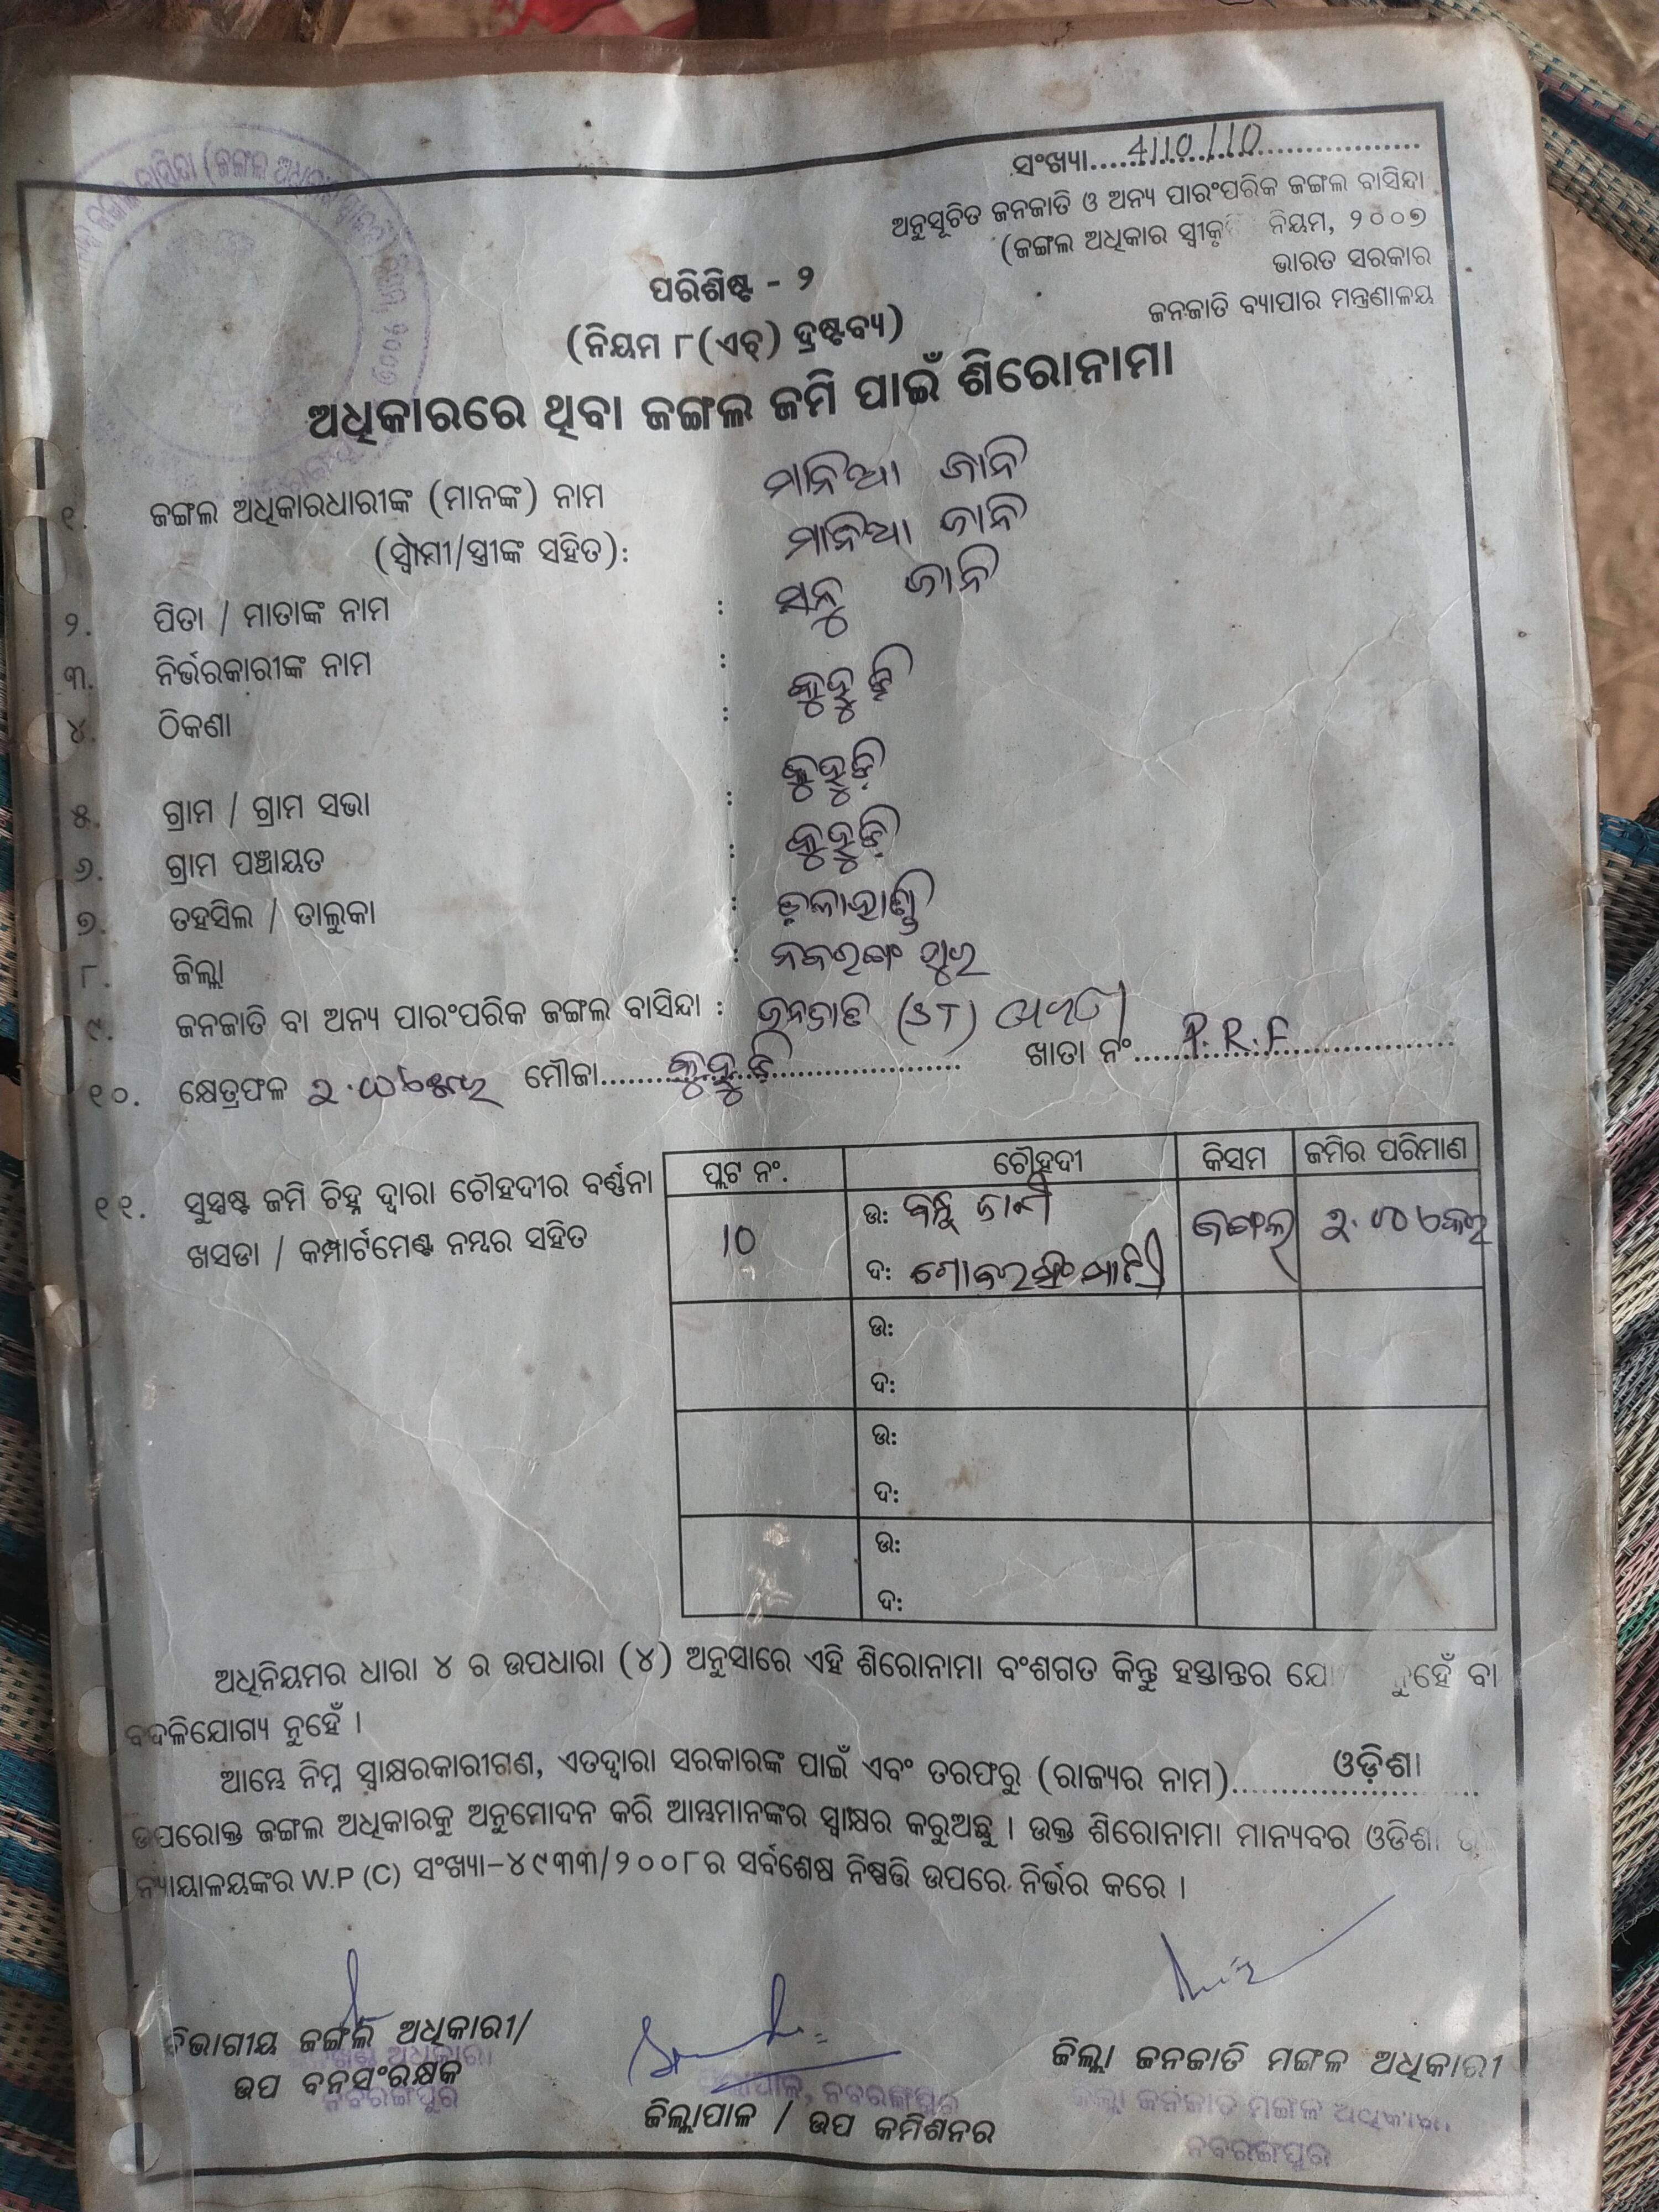 ସଂଖ୍ୟା.......4110/10..............
ଅନୁସୂଚିତ ଜନଜାତି ଓ ଅନ୍ୟ ପାରଂପରିକ ଜଙ୍ଗଲ ବାସିନ୍ଦା
(ଜଙ୍ଗଲ ଅଧିକାର ସ୍ୱୀକୃତି ନିୟମ, ୨୦୦୭
ଭାରତ ସରକାର
ଜନଜାତି ବ୍ୟାପାର ମନ୍ତ୍ରଣାଳୟ
ପରିଶିଷ୍ଟ - ୨
(ନିୟମ ୮(ଏଚ୍) ଦ୍ରଷ୍ଟବ୍ୟ)
ଅଧିକାରରେ ଥିବା ଜଙ୍ଗଲ ଜମି ପାଇଁ ଶିରୋନାମା
୧. ଜଙ୍ଗଲ ଅଧିକାରଧାରୀଙ୍କ (ମାନଙ୍କ) ନାମ ମାନିଆ ଜାନି
(ସ୍ୱାମୀ/ସ୍ତ୍ରୀଙ୍କ ସହିତ): ମାନିଆ ଜାନି
୨. ପିତା / ମାତାଙ୍କ ନାମ : ସନୁ ଜାନି
୩. ନିର୍ଭରକାରୀଙ୍କ ନାମ :
୪. ଠିକଣା :
୫. ଗ୍ରାମ / ଗ୍ରାମ ସଭା :
୬. ଗ୍ରାମ ପଞ୍ଚାୟତ :
୭. ତହସିଲ / ତାଲୁକା :
୮. ଜିଲ୍ଲା : ନବରଙ୍ଗପୁର
୯. ଜନଜାତି ବା ଅନ୍ୟ ପାରଂପରିକ ଜଙ୍ଗଲ ବାସିନ୍ଦା : ଜନଜାତି (ST)
୧୦. କ୍ଷେତ୍ରଫଳ ମୌଜା.................... ଖାତା ନଂ......P.R.F..........
୧୧. ସୁସ୍ପଷ୍ଟ ଜମି ଚିହ୍ନ ଦ୍ୱାରା ଚୌହଦୀର ବର୍ଣ୍ଣନା
ଖସଡା / କମ୍ପାର୍ଟମେଣ୍ଟ ନମ୍ବର ସହିତ
ପ୍ଲଟ ନଂ. ଚୌହଦୀ କିସମ ଜମିର ପରିମାଣ
10 ଉ: ଜଙ୍ଗଲ
ଦ:
ଉ:
ଦ:
ଉ:
ଦ:
ଉ:
ଦ:
ଅଧିନିୟମର ଧାରା ୪ ର ଉପଧାରା (୪) ଅନୁସାରେ ଏହି ଶିରୋନାମା ବଂଶଗତ କିନ୍ତୁ ହସ୍ତାନ୍ତର ନୁହେଁ ବା
ବଦଳିଯୋଗ୍ୟ ନୁହେଁ ।
ଆମ୍ଭେ ନିମ୍ନ ସ୍ୱାକ୍ଷରକାରୀଗଣ, ଏତଦ୍ୱାରା ସରକାରଙ୍କ ପାଇଁ ଏବଂ ତରଫରୁ (ରାଜ୍ୟର ନାମ).......ଓଡ଼ିଶା.......
ଉପରୋକ୍ତ ଜଙ୍ଗଲ ଅଧିକାରକୁ ଅନୁମୋଦନ କରି ଆମ୍ଭମାନଙ୍କର ସ୍ୱାକ୍ଷର କରୁଅଛୁ । ଉକ୍ତ ଶିରୋନାମା ମାନ୍ୟବର ଓଡିଶା
ନ୍ୟାୟାଳୟଙ୍କର W.P (C) ସଂଖ୍ୟା-୪୯୩୩/୨୦୦୮ର ସର୍ବଶେଷ ନିଷ୍ପତ୍ତି ଉପରେ ନିର୍ଭର କରେ ।
ବିଭାଗୀୟ ଜଙ୍ଗଲ ଅଧିକାରୀ/
ଉପ ବନସଂରକ୍ଷକ
ନବରଙ୍ଗପୁର
ଜିଲ୍ଲାପାଳ, ନବରଙ୍ଗପୁର
ଜିଲ୍ଲାପାଳ / ଉପ କମିଶନର
ଜିଲ୍ଲା ଜନଜାତି ମଙ୍ଗଳ ଅଧିକାରୀ
ଜିଲ୍ଲା ଜନଜାତି ମଙ୍ଗଳ ଅଧିକାରୀ
ନବରଙ୍ଗପୁର